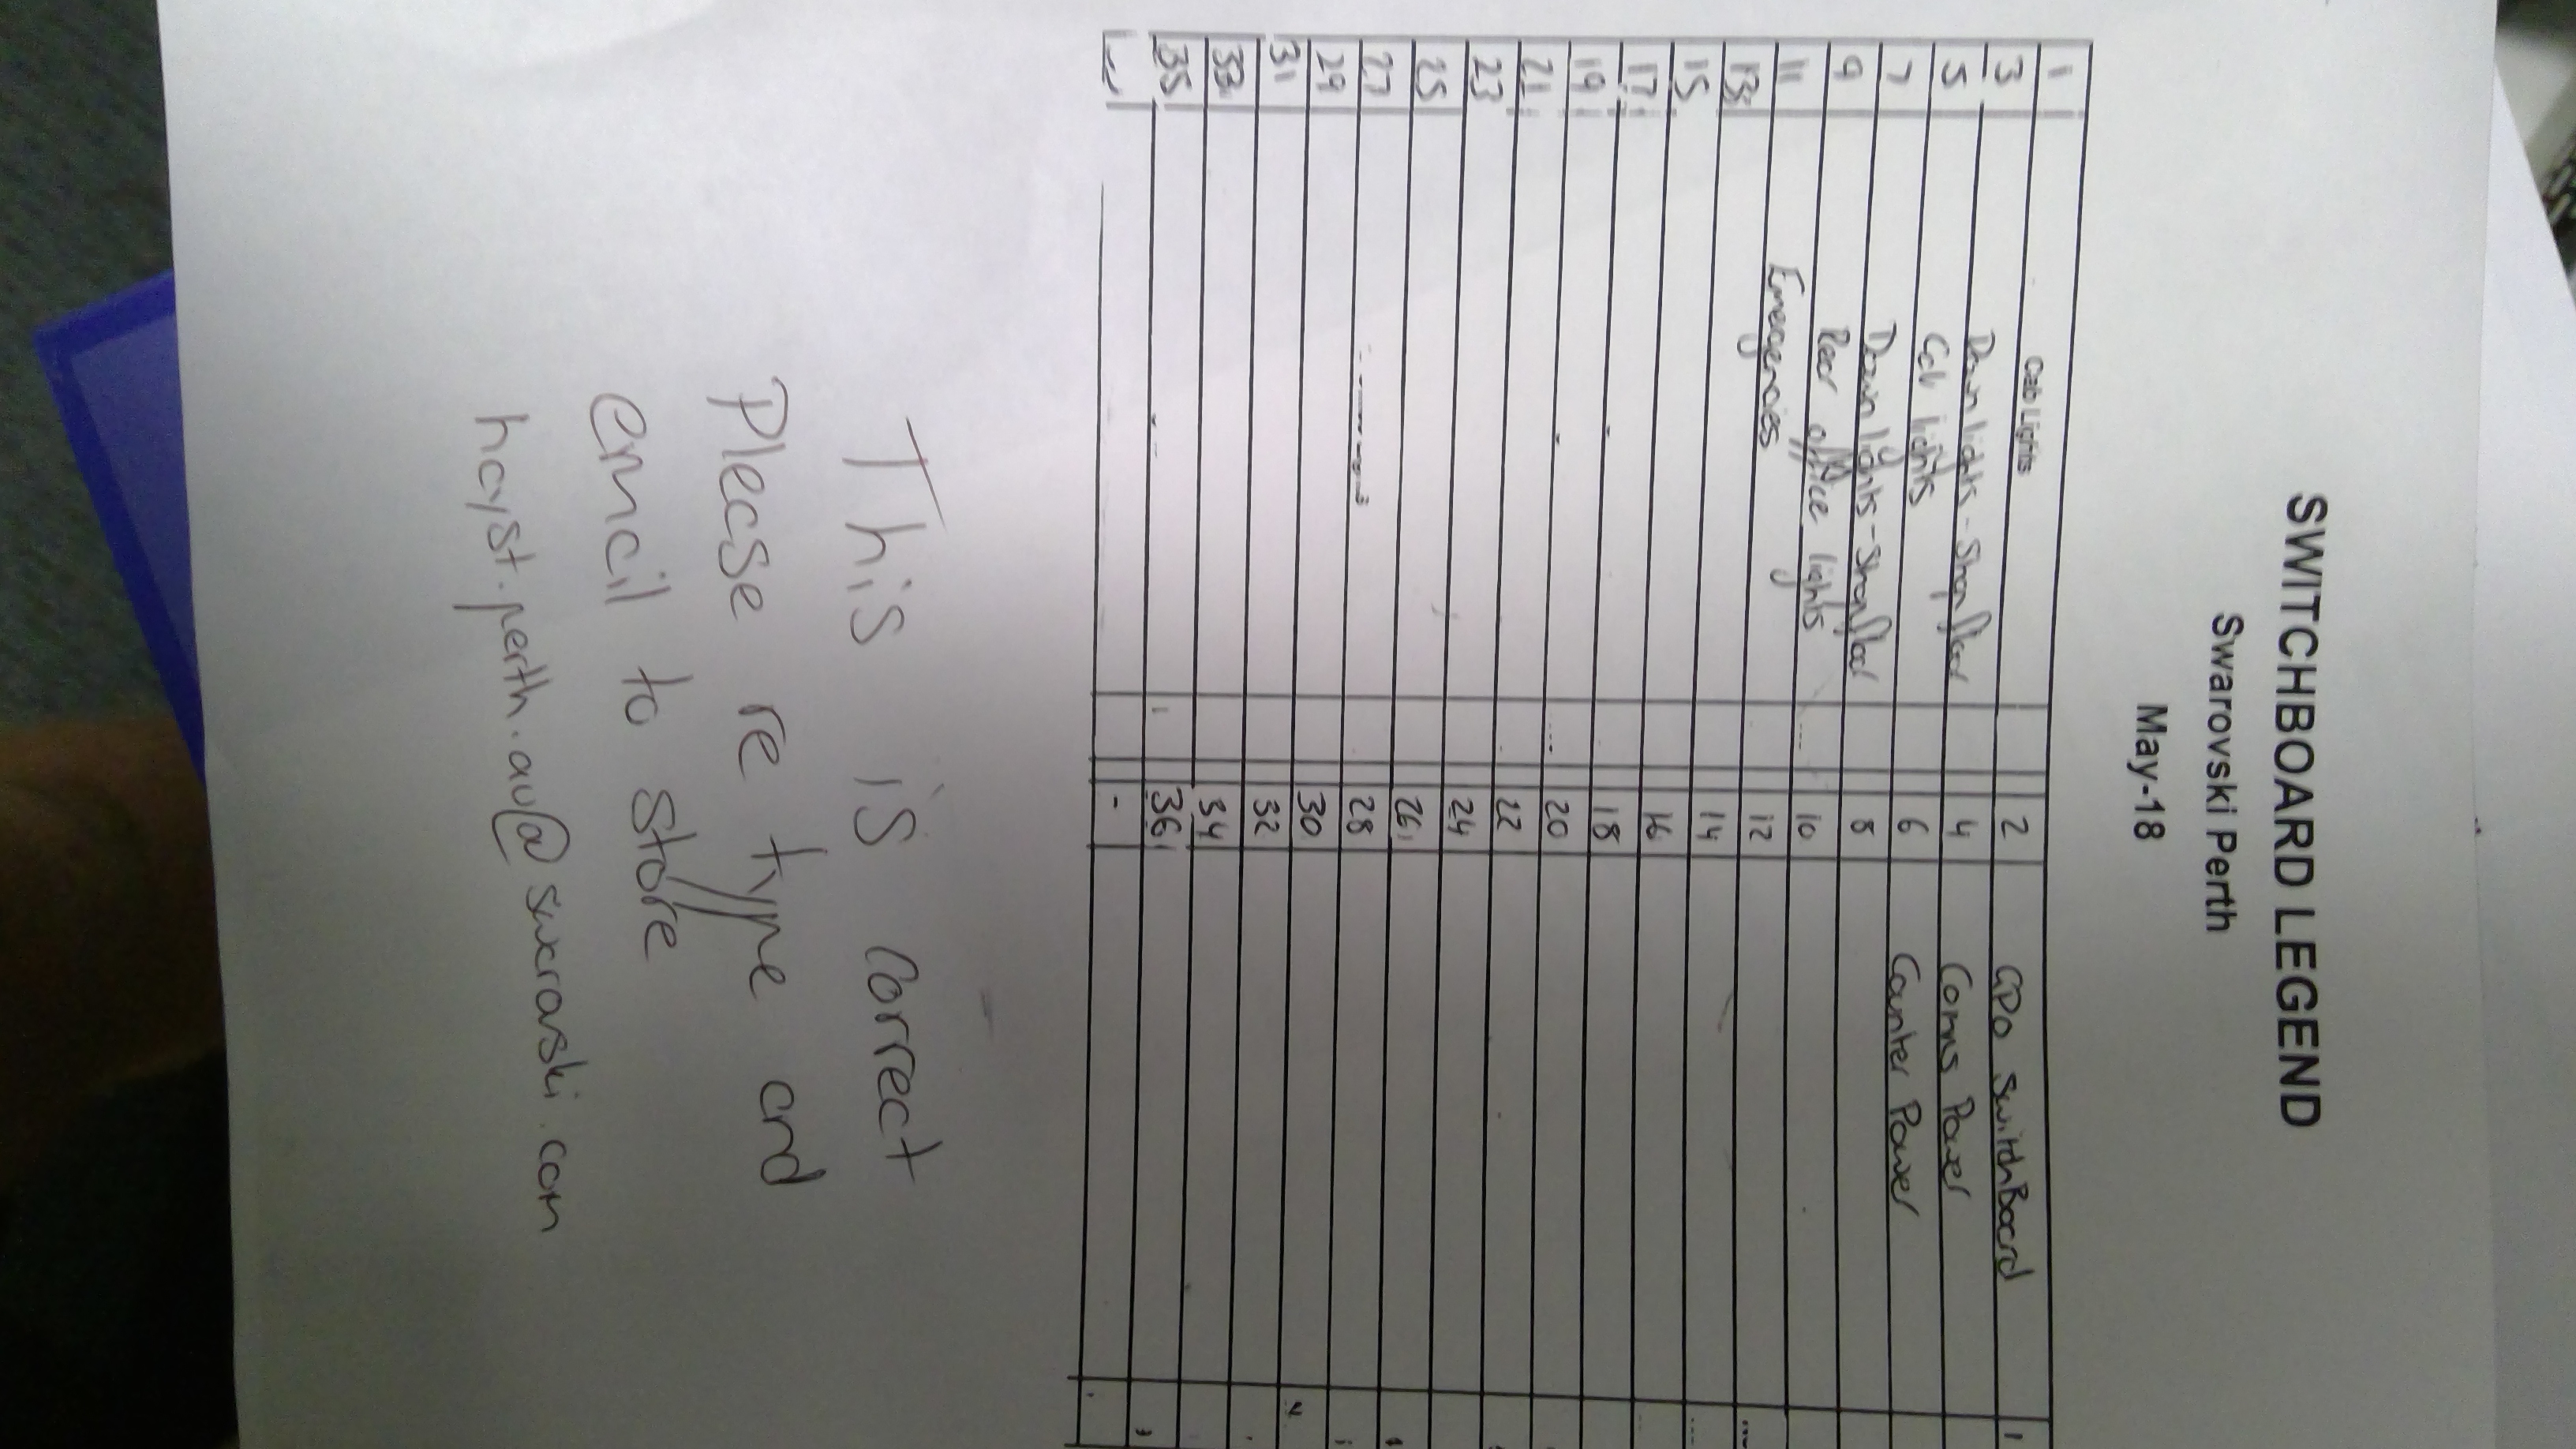 SWITCHBOARD LEGEND
Swarovski Perth
May-18
1 Cab Lights 2 GPO SwitchBoard
3 Down lights - Shop floor 4 Coms Power
5 Cab lights 6 Counter Power
7 Down lights - Shop floor 8
9 Rear office lights 10
11 Emergencies 12
13 14
15 16
17 18
19 20
21 22
23 24
25 26
27 28
29 30
31 32
33 34
35 36
This is correct
Please re type and
email to store
hayst.perth.au@swarovski.com